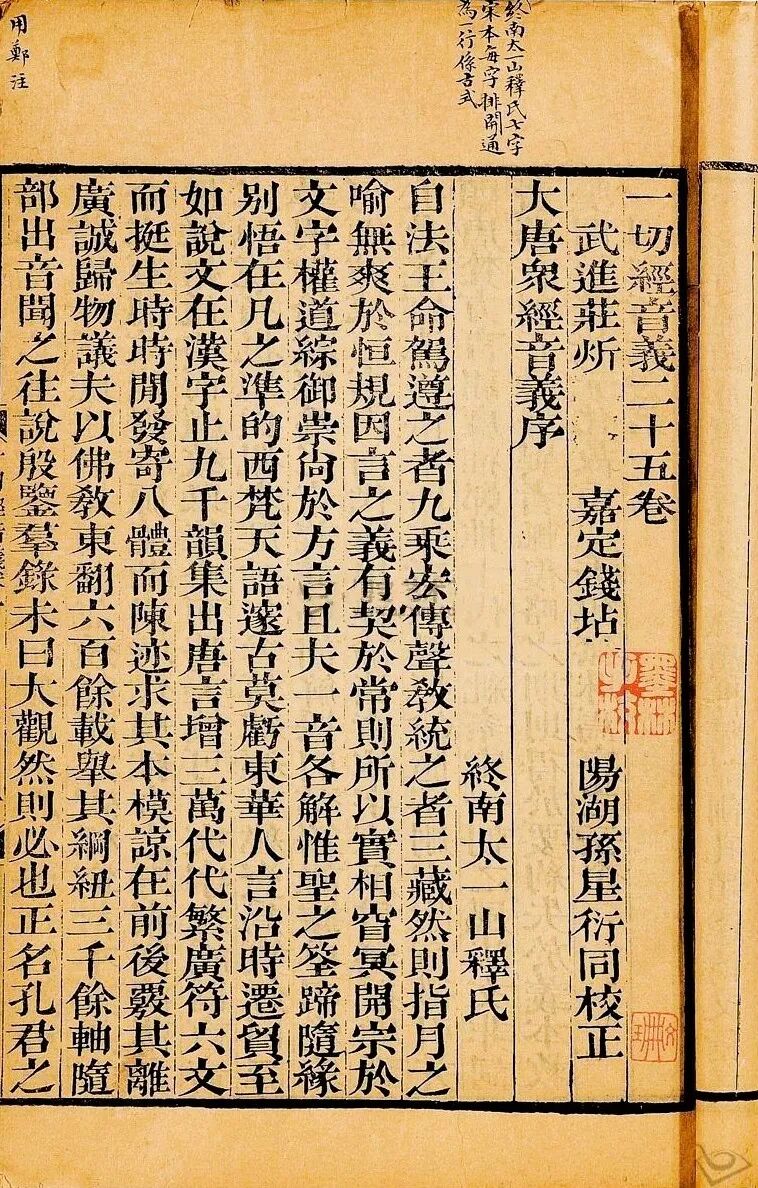 終南太一山釋氏七字
宋本每字排開通
為一行係古式
用鄭注
一切經音義二十五卷
武進莊炘 嘉定錢坫 陽湖孫星衍同校正
大唐衆經音義序
終南太一山釋氏
自法王命駕遵之者九乘宏傳聲敎統之者三藏然則指月之
喻無爽於恒規因言之義有契於常則所以實相㝠冥開宗於
文字權道綜御崇尙於方言且夫一音各解惟聖之筌蹄隨緣
別悟在凡之準的西梵天語邃古莫虧東華人言沿時遷貿至
如說文在漢字止九千韻集出唐言增三萬代代繁廣符六文
而挺生時時閒發寄八體而陳迹求其本模諒在前後覈其離
廣誠歸物議夫以佛敎東翻六百餘載舉其綱紐三千餘軸隨
部出音聞之往說殷鑒羣錄未曰大觀然則必也正名孔君之